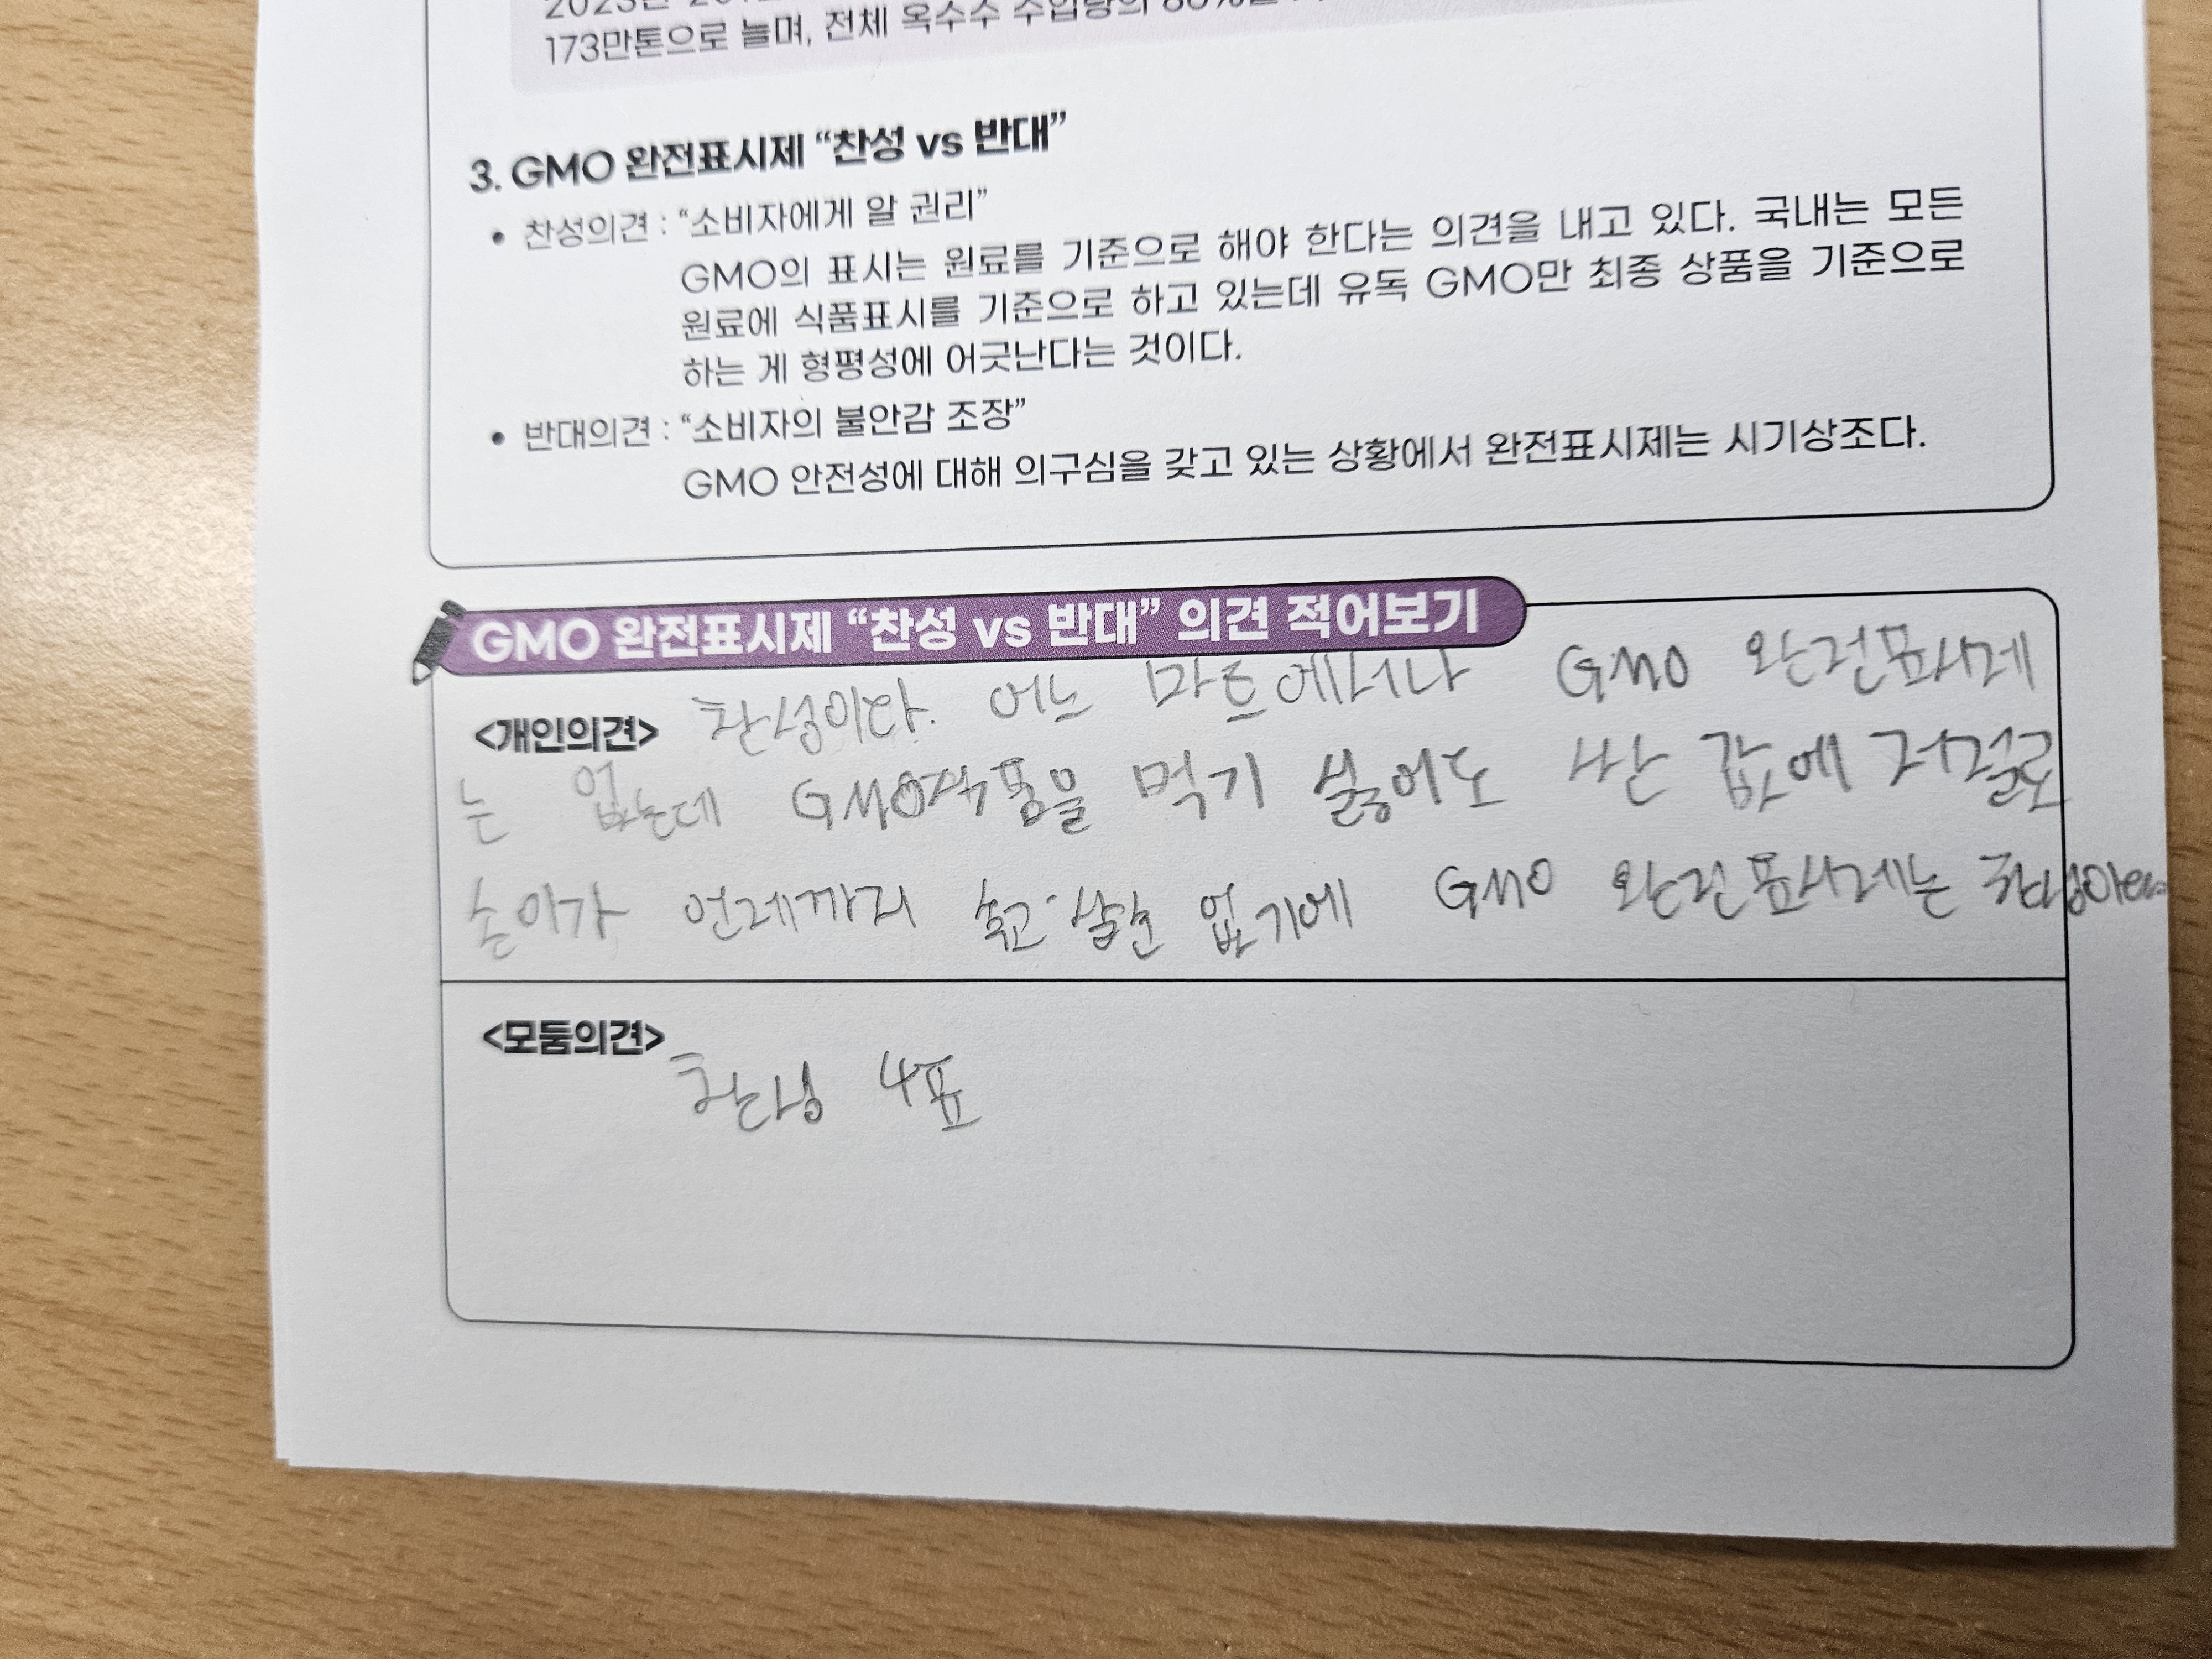 173만톤으로 늘며, 전체 옥수수 수입량의
3. GMO 완전표시제 “찬성 vs 반대”
• 찬성의견 : “소비자에게 알 권리”
GMO의 표시는 원료를 기준으로 해야 한다는 의견을 내고 있다. 국내는 모든
원료에 식품표시를 기준으로 하고 있는데 유독 GMO만 최종 상품을 기준으로
하는 게 형평성에 어긋난다는 것이다.
• 반대의견 : “소비자의 불안감 조장”
GMO 안전성에 대해 의구심을 갖고 있는 상황에서 완전표시제는 시기상조다.
GMO 완전표시제 “찬성 vs 반대” 의견 적어보기
<개인의견> 찬성이다. 어느 마트에서나 GMO 완전표시제
는 없는데 GMO식품을 먹기 싫어도 싼 값에 저절로
손이가 언제까지 속고 살순 없기에 GMO 완전표시제는 찬성이다.
<모둠의견>
찬성 4표